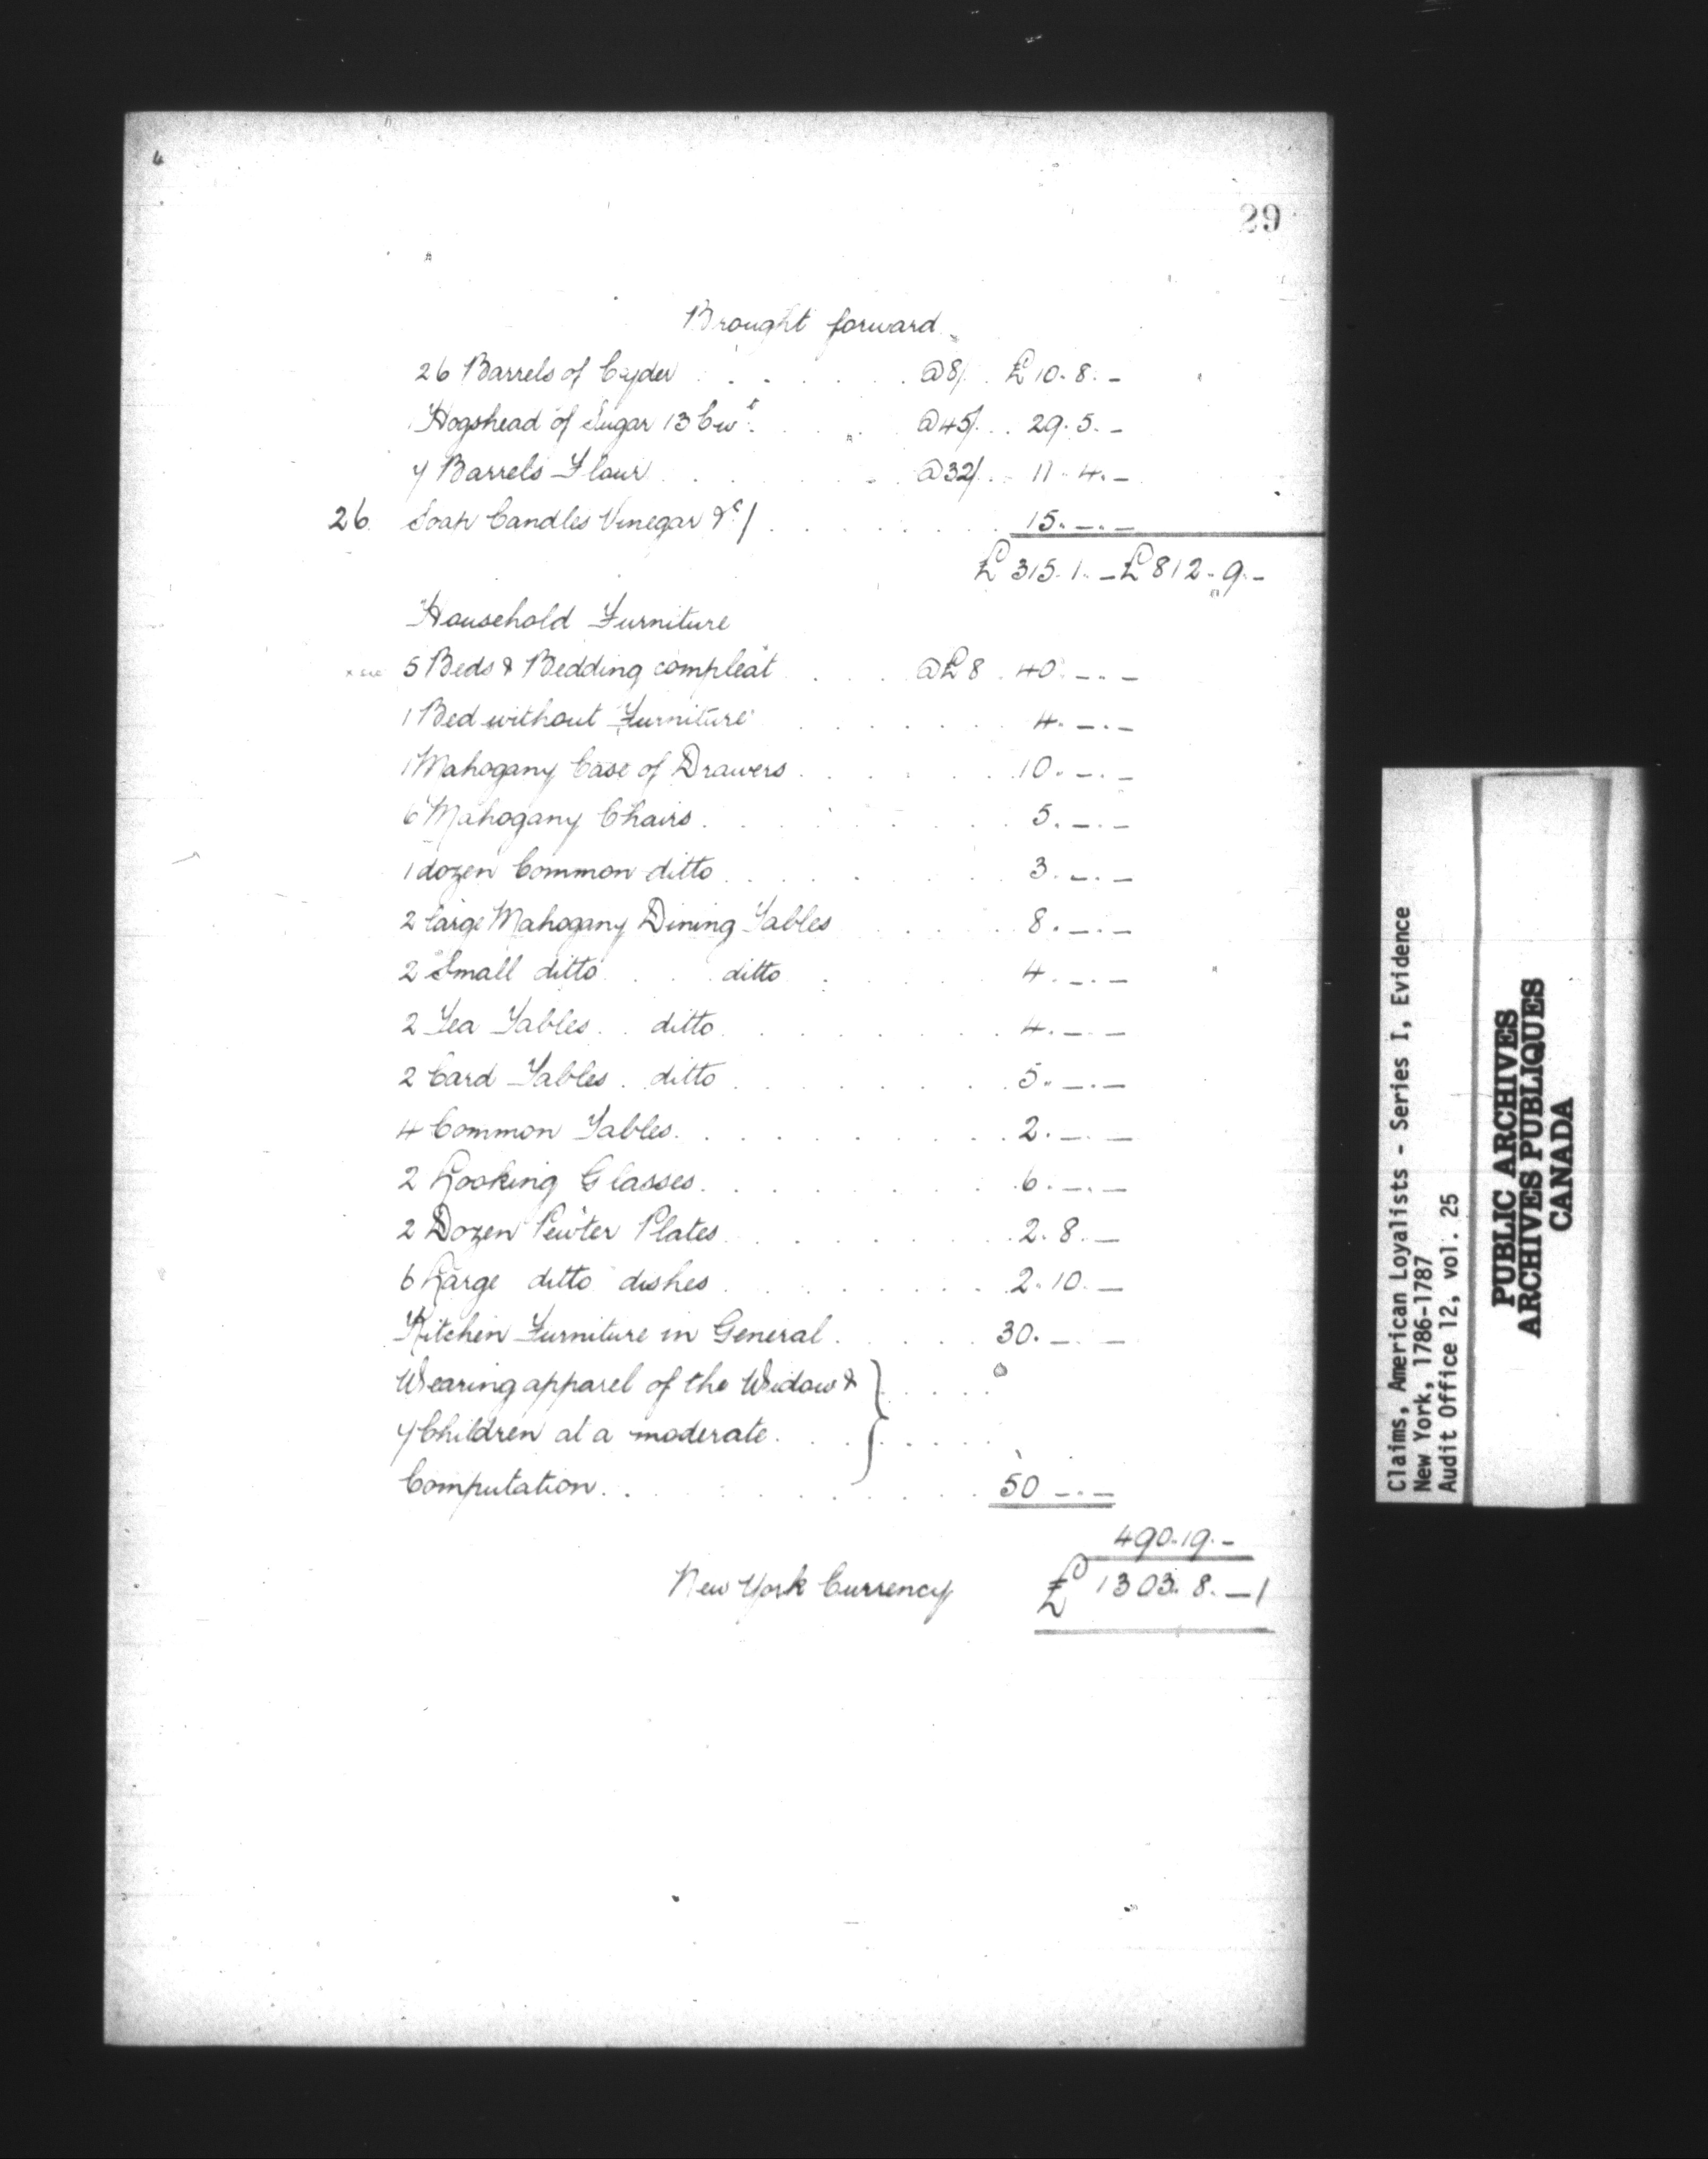 29
Brought forward
26 Barrels of Cyder @8/ £10.8.-
1 Hogshead of Sugar 13 Cwt. @45/ 29.5.-
7 Barrels Flour @32/ 11.4.-
26 Soap Candles Vinegar &c/ 15.-.-
£315.1.- £812.9.-
Household Furniture
5 Beds & Bedding compleat @£8 40.-.-
1 Bed without Furniture 4.-.-
1 Mahogany Case of Drawers 10.-.-
6 Mahogany Chairs 5.-.-
1 dozen Common ditto 3.-.-
2 large Mahogany Dining Tables 8.-.-
2 Small ditto ditto 4.-.-
2 Tea Tables ditto 4.-.-
2 Card Tables ditto 5.-.-
4 Common Tables 2.-.-
2 Looking Glasses 6.-.-
2 Dozen Pewter Plates 2.8.-
6 Large ditto dishes 2.10.-
Kitchen Furniture in General 30.-.-
Wearing apparel of the Widow &
7 Children at a moderate
Computation 50.-.-
490.19.-
New York Currency £1303.8.-/
Claims, American Loyalists - Series I, Evidence
New York, 1786-1787
Audit Office 12, vol. 25
PUBLIC ARCHIVES
ARCHIVES PUBLIQUES
CANADA